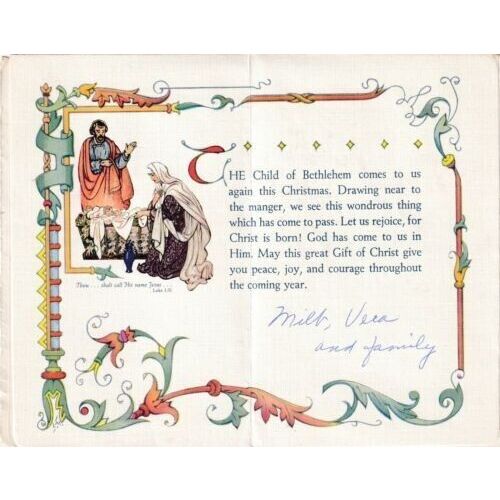 THE Child of Bethlehem comes to us
again this Christmas. Drawing near to
the manger, we see this wondrous thing
which has come to pass. Let us rejoice, for
Christ is born! God has come to us in
Him. May this great Gift of Christ give
you peace, joy, and courage throughout
the coming year.
Thou . . . shalt call His name Jesus . . .
Luke 1:31
Milt, Vera
and family